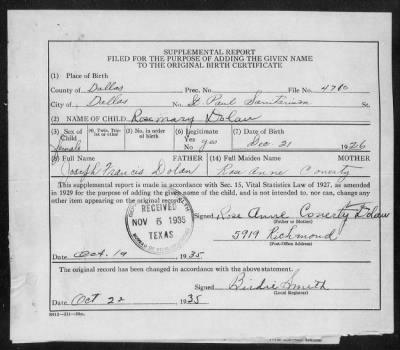 SUPPLEMENTAL REPORT
FILED FOR THE PURPOSE OF ADDING THE GIVEN NAME
TO THE ORIGINAL BIRTH CERTIFICATE
(1) Place of Birth
County of Dallas Prec. No. File No. 4710
City of Dallas No. St Paul Sanitarium St.
(2) NAME OF CHILD Rosemary Dolan
(3) Sex of Child female (4) Twin, Triplet or other (5) No. in order of birth (6) Legitimate Yes No yes (7) Dec 21 1926
(8) Full Name FATHER (14) Full Maiden Name MOTHER
Joseph Francis Dolan Rose Anne Conerty
This supplemental report is made in accordance with Sec. 15, Vital Statistics Law of 1927, as amended
in 1929 for the purpose of adding the given name of child, and is not intended to, nor can, change any
other item appearing on the original record.
RECEIVED
NOV 5 1935
TEXAS
Signed Rose Anne Conerty Dolan
(Father or Mother)
5919 Richmond
(Post-Office Address)
Date Oct. 19 1935
The original record has been changed in accordance with the above statement.
Signed Birdie Smith
(Local Registrar)
Date Oct 22 1935